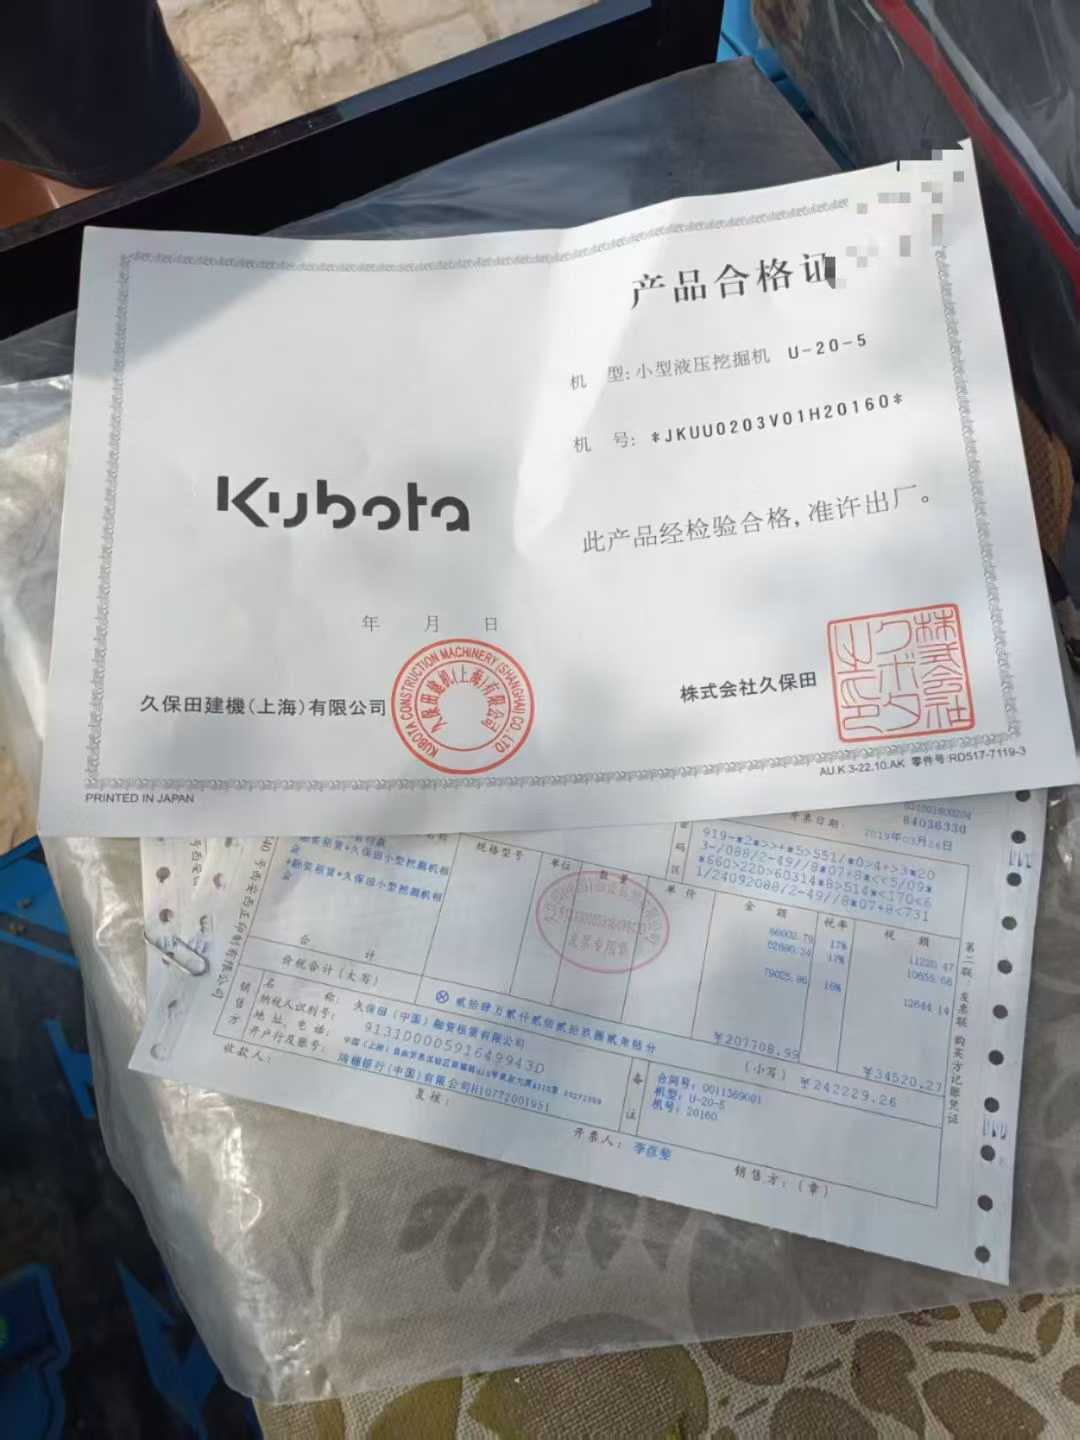 产品合格证
机 型: 小型液压挖掘机 U-20-5
机 号: *JKUU0203V01H20160*
此产品经检验合格, 准许出厂。
Kubota
年 月 日
久保田建機(上海)有限公司
KUBOTA CONSTRUCTION MACHINERY (SHANGHAI) CO., LTD
久保田建机(上海)有限公司
株式会社久保田
株式会社クボタ之印
AU.K.3-22.10.AK 零件号:RD517-7119-3
PRINTED IN JAPAN
84036330
开票日期: 2019年03月26日
规格型号 单位 数量 单价 金额 税率 税额
919-*2*>>+*5>551/*0>4+>3*20
3-/088/2-49//8*07+8*<<5/09*
*660>22D>60314*8>514*<170<6
1/24092088/2-49//8*07+8<731
*融资租赁*久保田小型挖掘机租金
*融资租赁*久保田小型挖掘机租金
17% 11220.47
17%
79025.86 16% 12644.14
发票专用章
合 计
¥207708.99 ¥34520.27
价税合计(大写) ⊗ 贰拾肆万贰仟贰佰贰拾玖圆贰角陆分 (小写) ¥242229.26
销售方
名 称: 久保田(中国)融资租赁有限公司
纳税人识别号: 91310000591649943D
地址、电话:
开户行及账号: 瑞穗银行(中国)有限公司H10772001951
备注
合同号: 0011369001
机型: U-20-5
机号: 20160
收款人:
复核:
开票人:
销售方: (章)
第二联: 发票联 购买方记账凭证